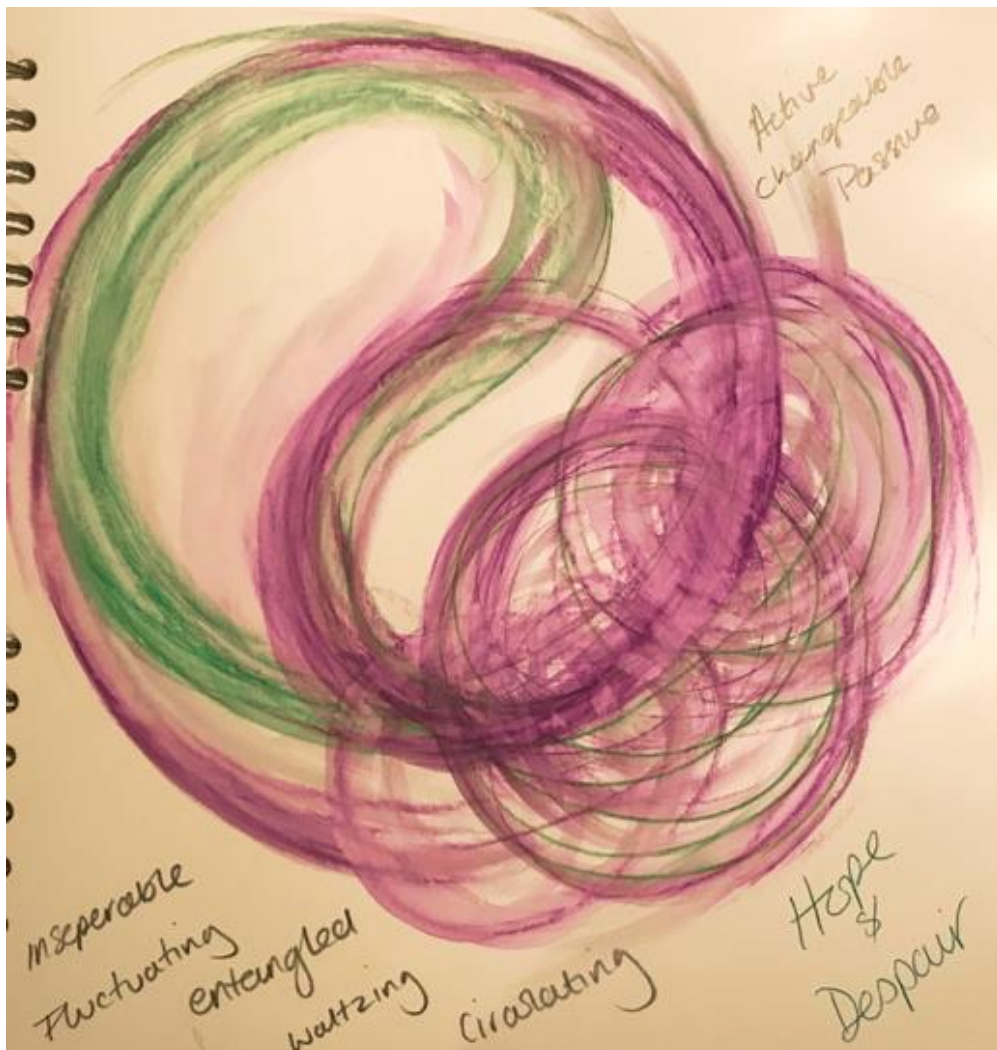 Active
Changeable
Passive
inseperable
Fluctuating
entangled
waltzing
Circulating
Hope
&
Despair